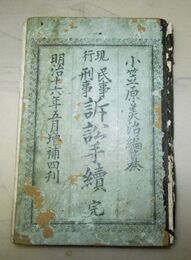 小笠原美治編纂
現行
民事
刑事
訴訟手續 完
明治十六年五月増補四刻